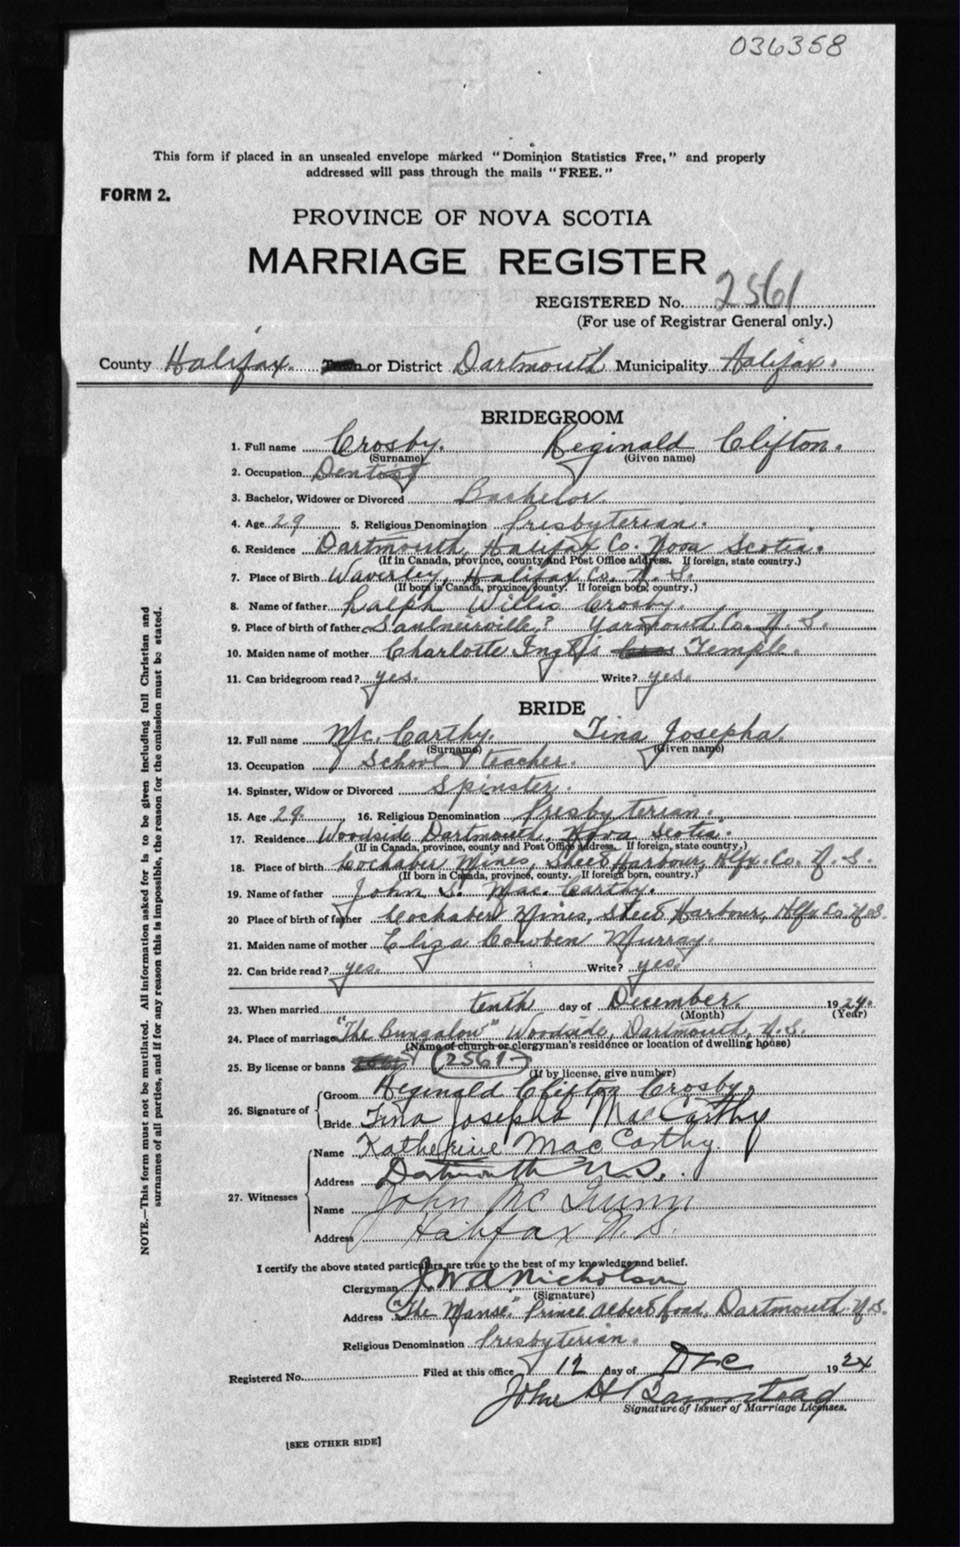 036358
This form if placed in an unsealed envelope marked "Dominion Statistics Free," and properly
addressed will pass through the mails "FREE."
FORM 2.
PROVINCE OF NOVA SCOTIA
MARRIAGE REGISTER
REGISTERED No. 2561
(For use of Registrar General only.)
County Halifax. or District Dartmouth Municipality Halifax.
BRIDEGROOM
1. Full name Crosby. Reginald Clifton.
(Surname) (Given name)
2. Occupation Dentist
3. Bachelor, Widower or Divorced Bachelor.
4. Age 29 5. Religious Denomination Presbyterian.
6. Residence Dartmouth, Halifax Co. Nova Scotia.
(If in Canada, province, county and Post Office address. If foreign, state country.)
7. Place of Birth Waverley, Halifax Co. N.S.
(If born in Canada, province, county. If foreign born, country.)
8. Name of father Ralph Willis Crosby.
9. Place of birth of father Saulneirville? Yarmouth Co. N.S.
10. Maiden name of mother Charlotte Inglis Temple.
11. Can bridegroom read? yes. Write? yes.
BRIDE
12. Full name Mc. Carthy. Tina Josepha
(Surname) (Given name)
13. Occupation School teacher.
14. Spinster, Widow or Divorced Spinster.
15. Age 29. 16. Religious Denomination Presbyterian.
17. Residence Woodside, Dartmouth, Nova Scotia.
(If in Canada, province, county and Post Office address. If foreign, state country.)
18. Place of birth Cochaber Mines, Sheet Harbour, Hfx. Co. N.S.
(If born in Canada, province, county. If foreign born, country.)
19. Name of father John S. Mac. Carthy.
20 Place of birth of father Cochaber Mines, Sheet Harbour, Hfx Co N.S.
21. Maiden name of mother Eliza Cowden Murray.
22. Can bride read? yes. Write? yes.
23. When married tenth day of December. 1924.
(Month) (Year)
24. Place of marriage "The Bungalow" Woodside, Dartmouth, N.S.
(Name of church or clergyman's residence or location of dwelling house)
25. By license or banns (2561)
(If by license, give number)
26. Signature of Groom Reginald Clifton Crosby.
Bride Tina Josepha MacCarthy
27. Witnesses Name Katherine MacCarthy.
Address Dartmouth N.S.
Name John Mc
Address Halifax N.S.
I certify the above stated particulars are true to the best of my knowledge and belief.
Clergyman J W A Nicholson
(Signature)
Address "The Manse." Prince Albert Road, Dartmouth. N.S.
Religious Denomination Presbyterian.
Registered No. Filed at this office 12 day of Dec 1924
John H
Signature of Issuer of Marriage Licenses.
[SEE OTHER SIDE]
NOTE.—This form must not be mutilated. All information asked for is to be given including full Christian and
surnames of all parties, and if for any reason this is impossible, the reason for the omission must be stated.